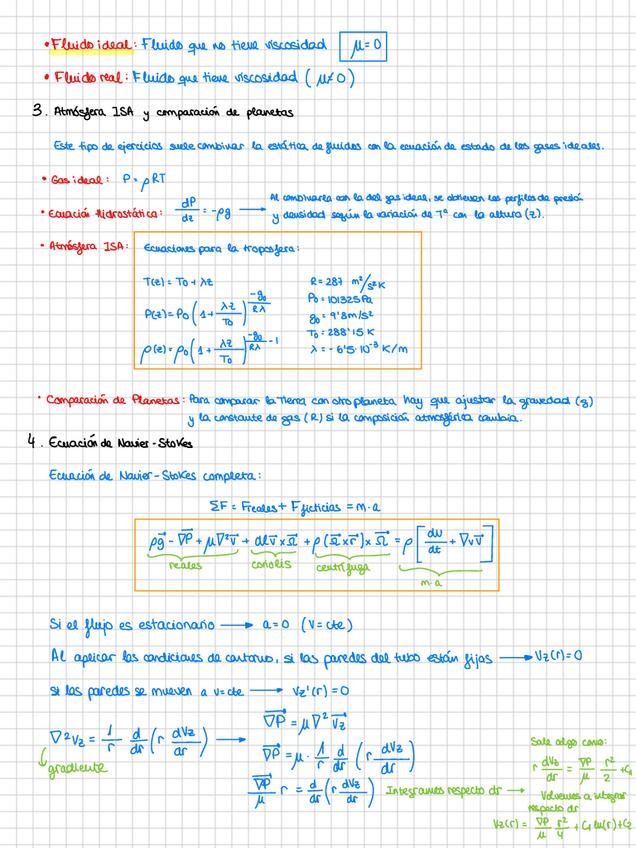 • Fluido ideal: Fluido que no tiene viscosidad μ=0
• Fluido real: Fluido que tiene viscosidad (μ≠0)
3. Atmósfera ISA y comparación de planetas
Este tipo de ejercicios suele combinar la estática de fluidos con la ecuación de estado de los gases ideales.
• Gas ideal: P=ρRT
• Ecuación Hidrostática: dP/dz = -ρg → Al combinarla con la del gas ideal, se obtienen los perfiles de presión
y densidad según la variación de Tª con la altura (z).
• Atmósfera ISA: Ecuaciones para la troposfera:
T(z) = T₀ + λz R = 287 m²/s²K
P₀ = 101325 Pa
P(z) = P₀(1 + λz/T₀)^(-g₀/Rλ) g₀ = 9'8 m/s²
T₀ = 288'15 K
ρ(z) = ρ₀(1 + λz/T₀)^(-g₀/Rλ - 1) λ = -6'5·10⁻³ K/m
• Comparación de Planetas: Para comparar la Tierra con otro planeta hay que ajustar la gravedad (g)
y la constante de gas (R) si la composición atmosférica cambia.
4. Ecuación de Navier-Stokes
Ecuación de Navier-Stokes completa:
ΣF = Freales + Fficticias = m·a
ρg⃗ - ∇P⃗ + μ∇²v⃗ + v⃗ x Ω⃗ + ρ(Ω⃗ x r⃗) x Ω⃗ = ρ[dv/dt + ∇v v⃗]
reales coriolis centrífuga m·a
Si el flujo es estacionario → a=0 (v=cte)
Al aplicar las condiciones de contorno, si las paredes del tubo están fijas → Vz(r)=0
si las paredes se mueven a v=cte → Vz'(r)=0
∇P⃗ = μ∇²V⃗z
∇²Vz = 1/r d/dr (r dVz/dr) → ∇P⃗ = μ · 1/r d/dr (r dVz/dr)
gradiente
∇P⃗/μ r = d/dr (r dVz/dr) Integramos respecto dr →
Sale algo como:
r dVz/dr = ∇P/μ r²/2 + C₁
Volvemos a integrar
respecto dr
Vz(r) = ∇P/μ r²/4 + C₁ ln(r) + C₂